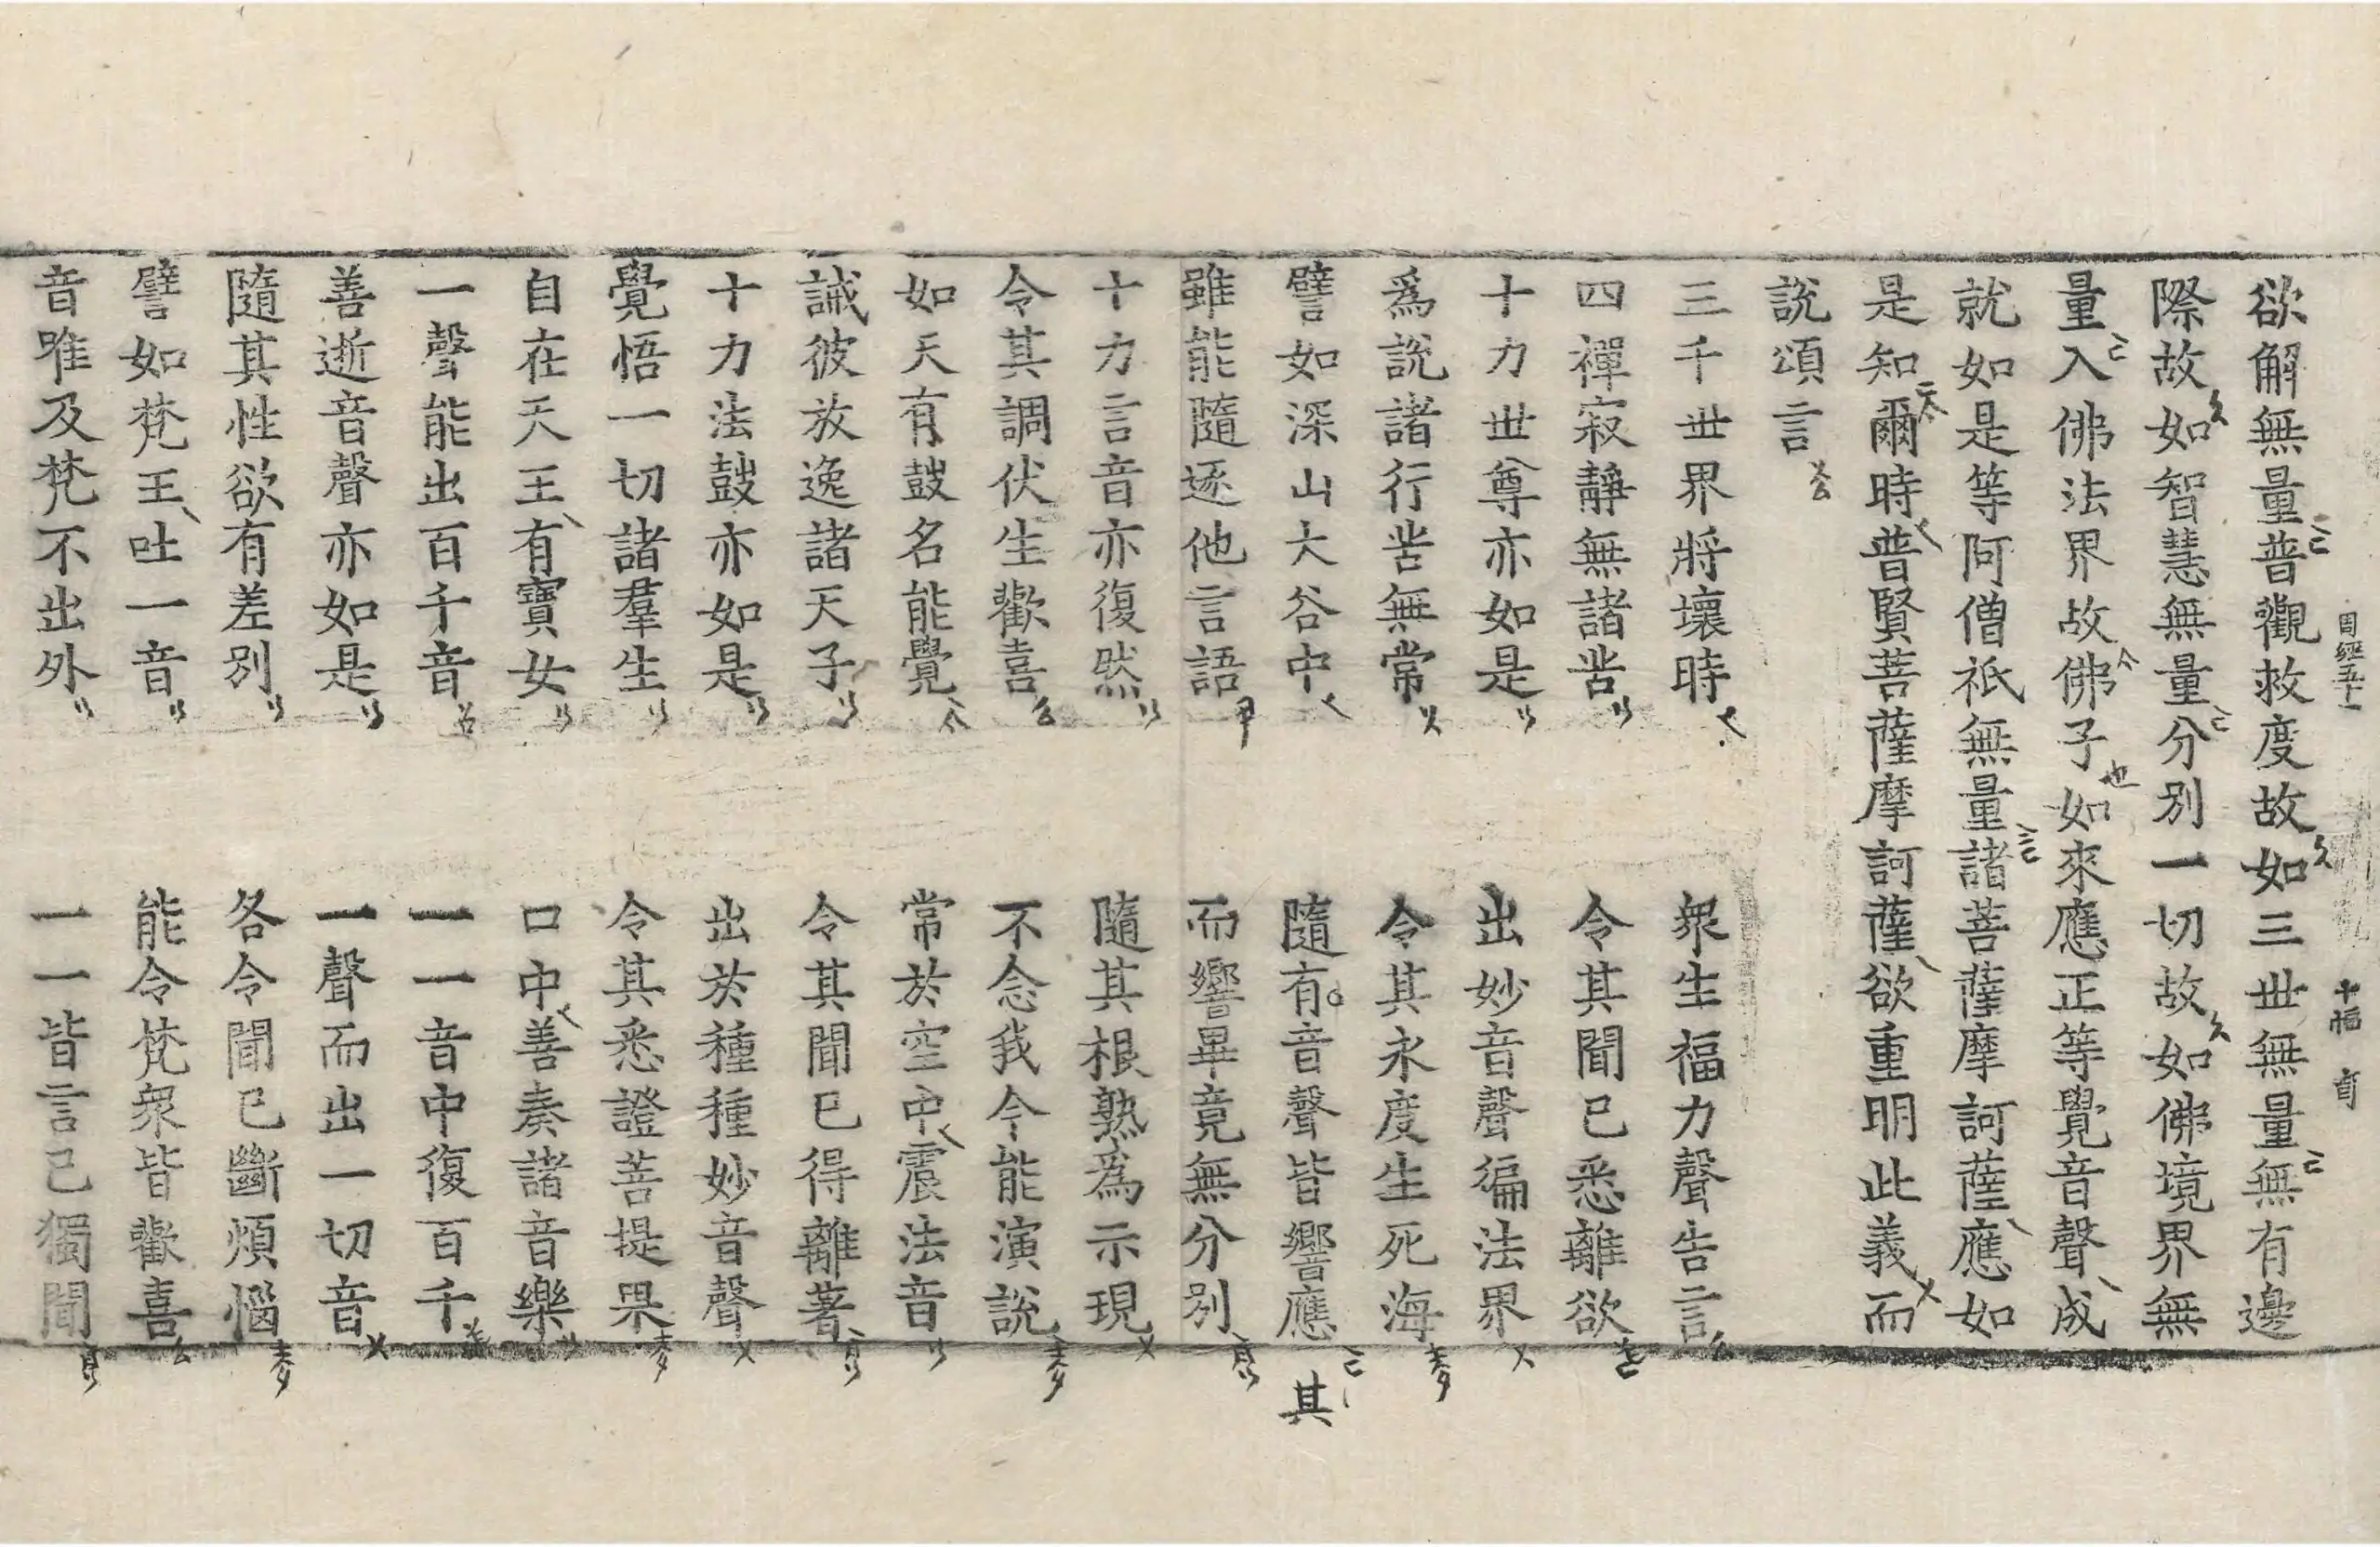 周經五十一 十幅
欲解無量普觀救度故如三世無量無有邊
際故如智慧無量分別一切故如佛境界無
量入佛法界故佛子如來應正等覺音聲成
就如是等阿僧祇無量諸菩薩摩訶薩應如
是知爾時普賢菩薩摩訶薩欲重明此義而
說頌言
三千世界將壞時 衆生福力聲告言
四禪寂靜無諸苦 令其聞已悉離欲
十力世尊亦如是 出妙音聲徧法界
爲說諸行苦無常 令其永度生死海
譬如深山大谷中 隨有音聲皆響應 其
雖能隨逐他言語 而響畢竟無分別
十力言音亦復然 隨其根熟爲示現
令其調伏生歡喜 不念我今能演說
如天有鼓名能覺 常於空中震法音
誡彼放逸諸天子 令其聞已得離著
十力法鼓亦如是 出於種種妙音聲
覺悟一切諸羣生 令其悉證菩提果
自在天王有寶女 口中善奏諸音樂
一聲能出百千音 一一音中復百千
善逝音聲亦如是 一聲而出一切音
隨其性欲有差別 各令聞已斷煩惱
譬如梵王吐一音 能令梵衆皆歡喜
音唯及梵不出外 一一皆言己獨聞